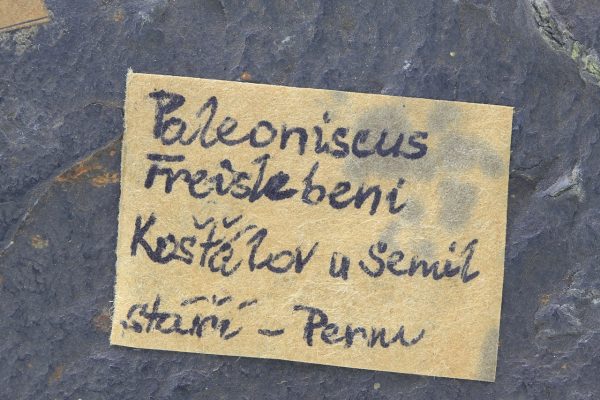 Paleoniscus
Freislebeni
Košťálov u Semil
stáří - Perm